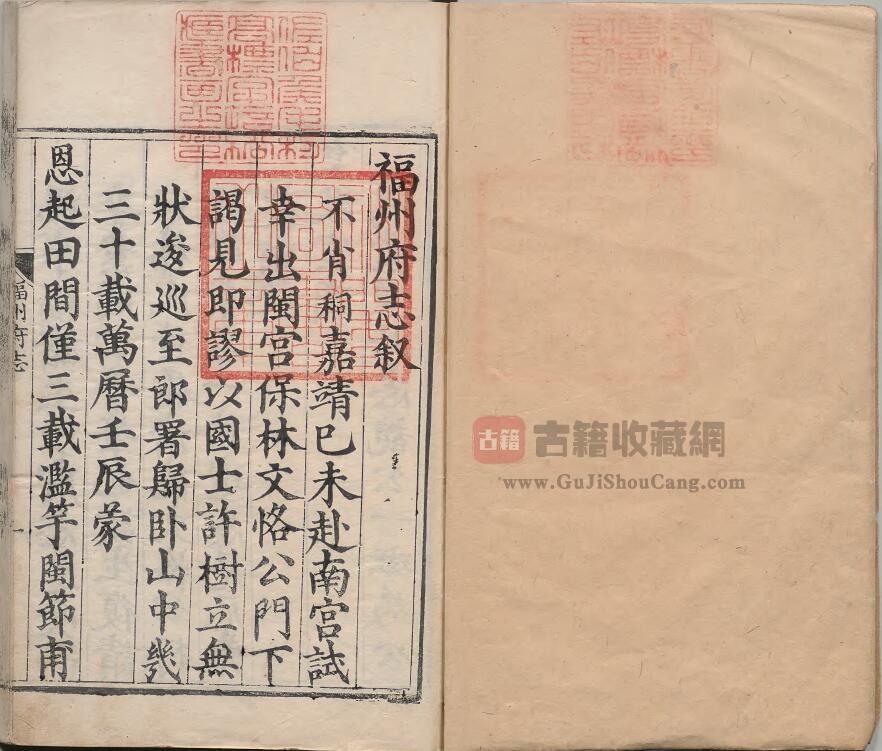 福州府志叙
不肖穊嘉靖己未赴南宫試
幸出閩宫保林文恪公門下
謁見即謬以國士許樹立無
狀逡巡至郎署歸卧山中幾
三十載萬曆壬辰蒙
恩起田間僅三載濫竽閩節甫
福州府志
古籍 古籍收藏網
www.GuJiShouCang.com